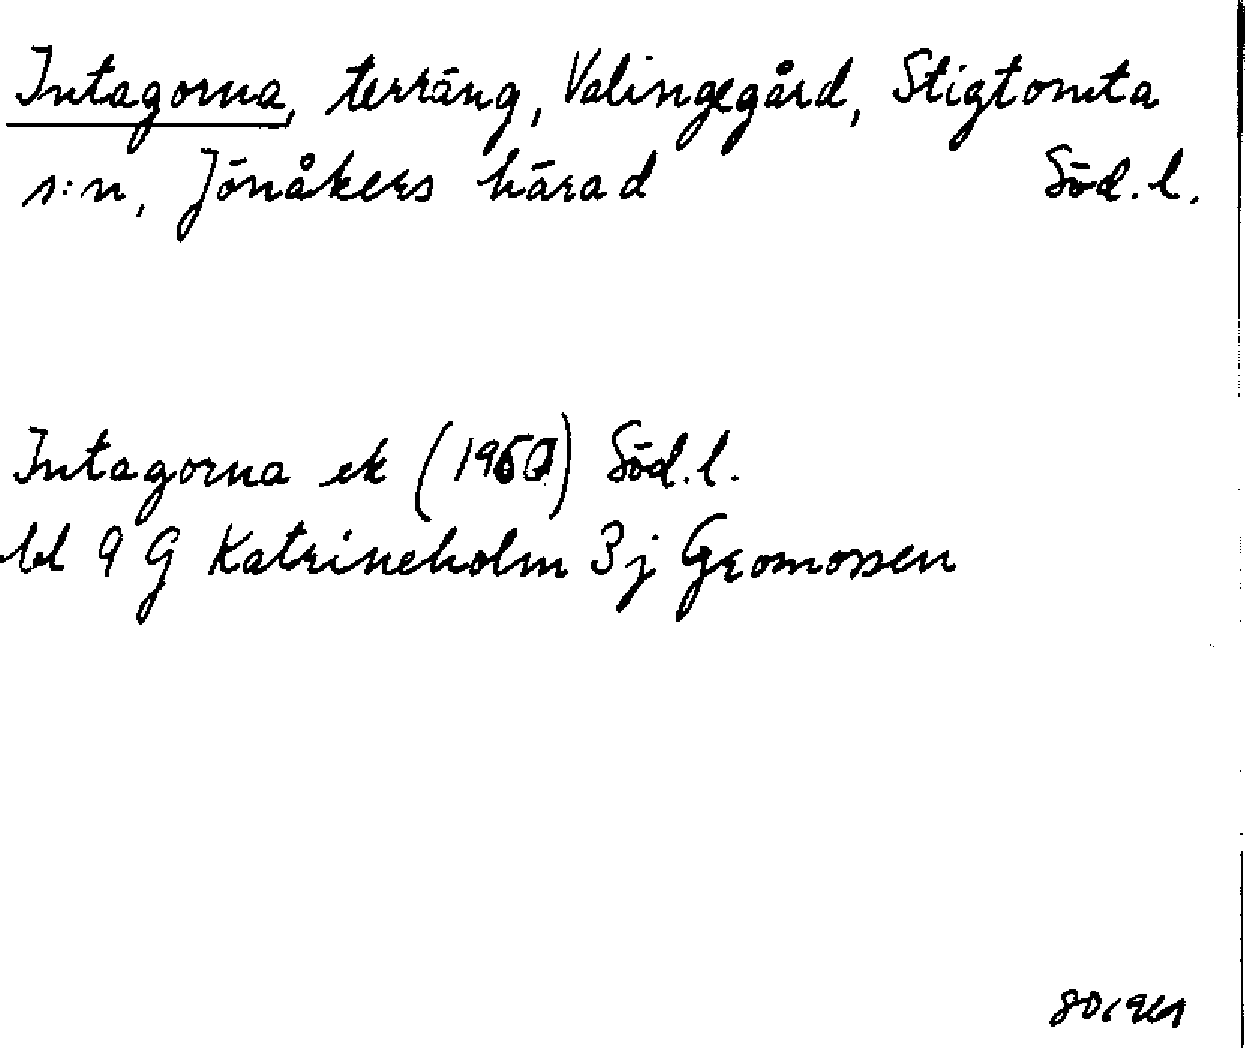 Intagorna, terräng, Valingegård, Stigtomta
s:n, Jönåkers härad Söd.l.
Intagorna ek (1960) Söd.l.
bl 9 G Katrineholm 3j Gromossen